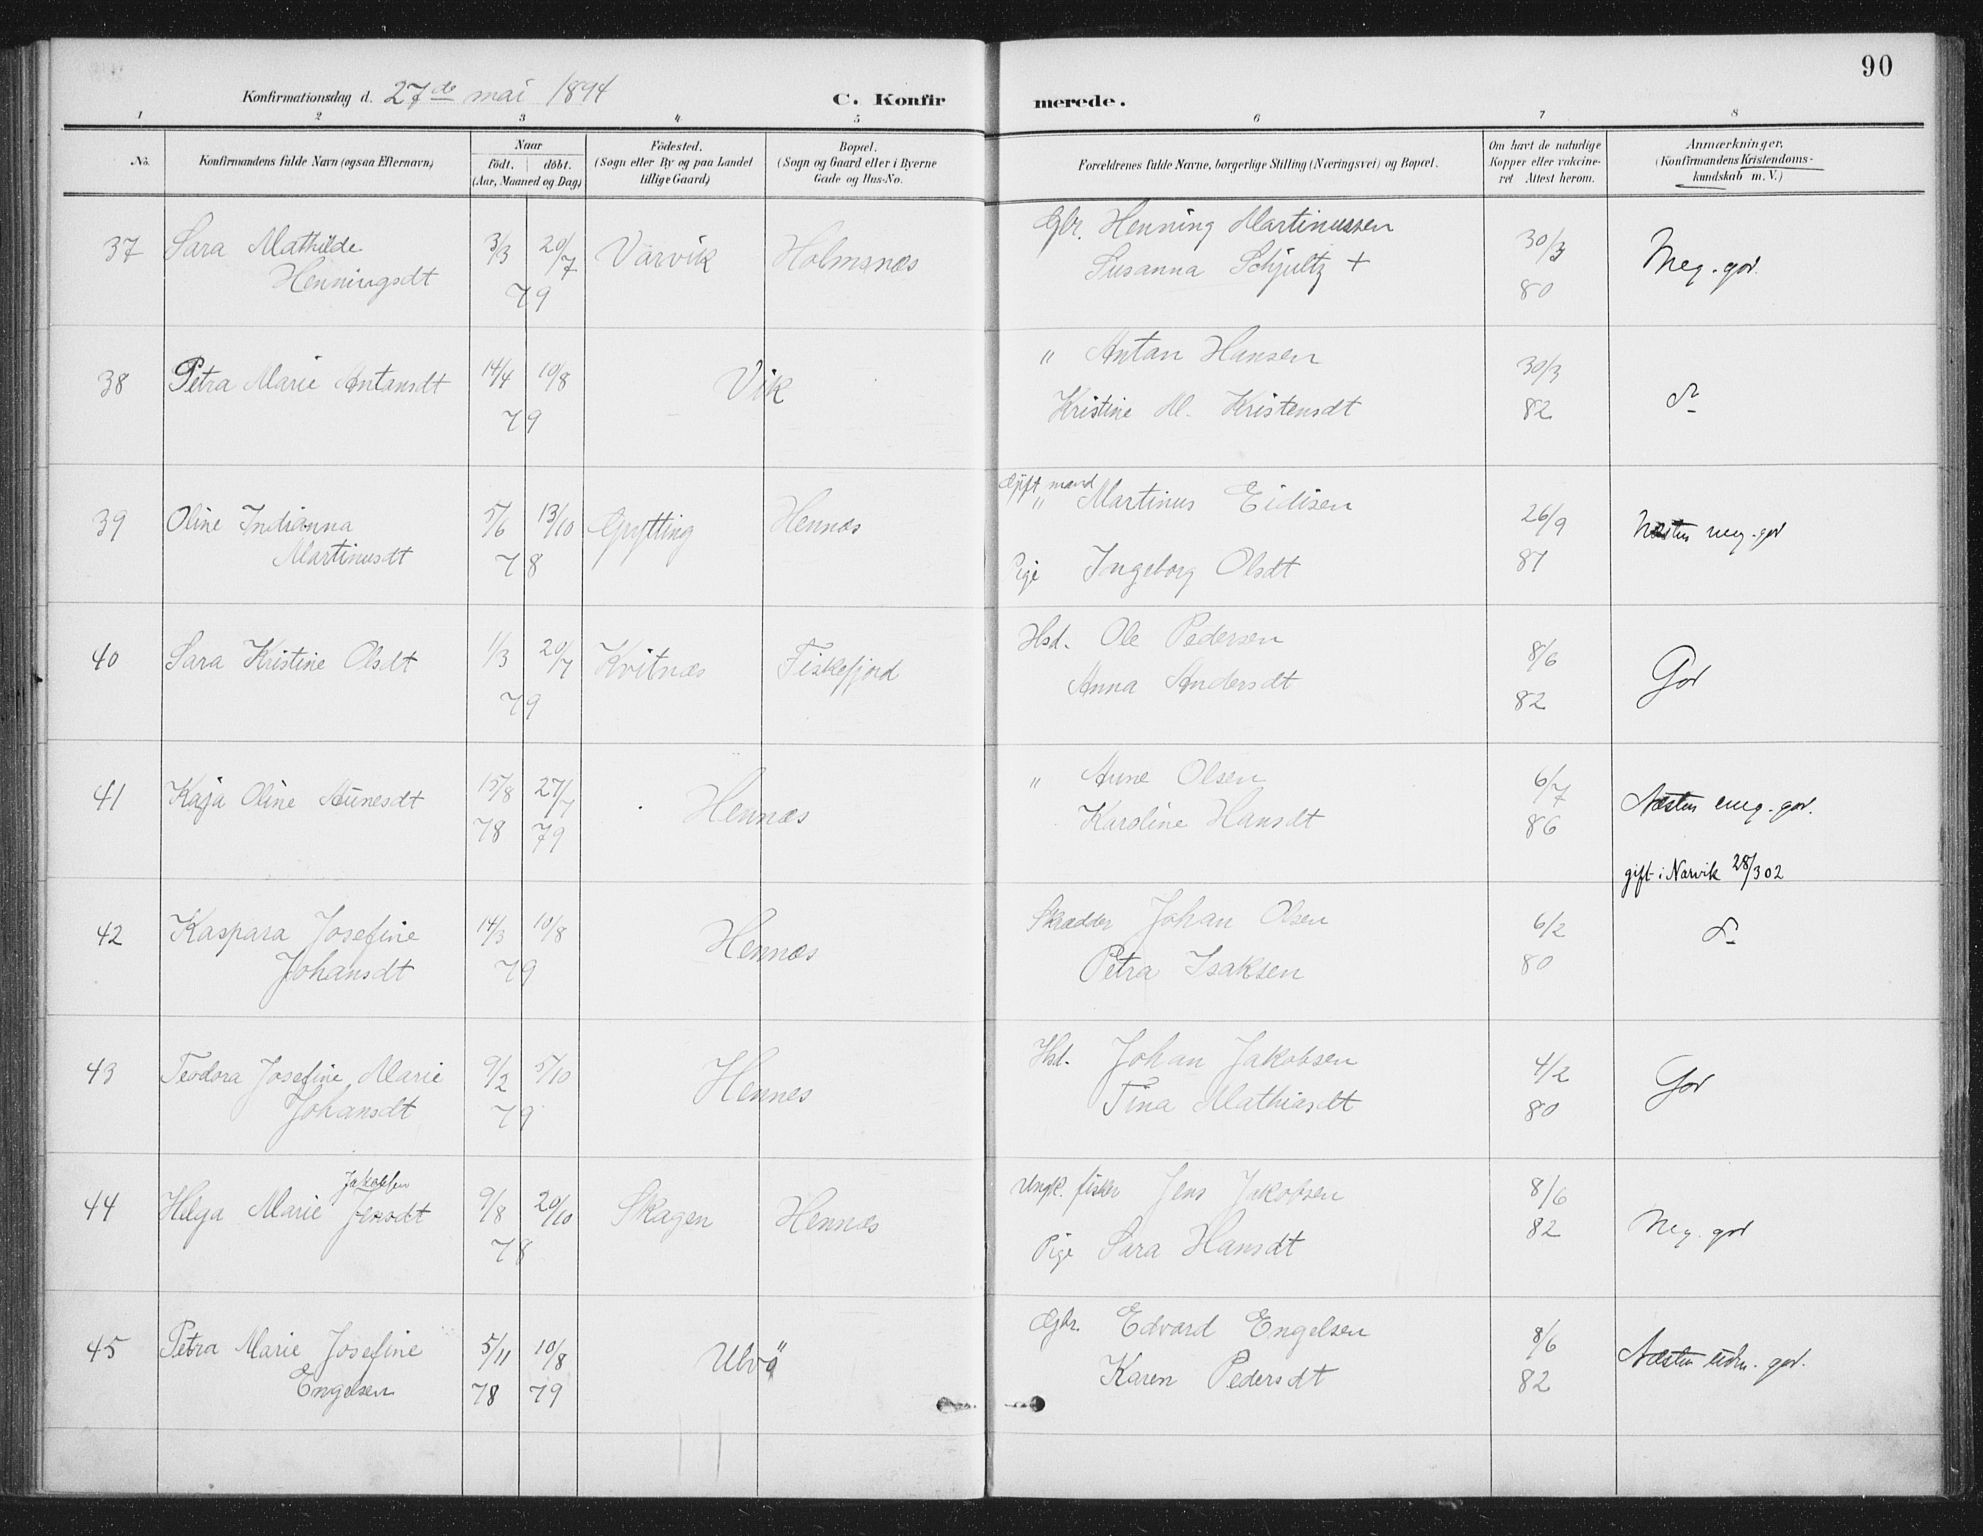 90
Konfirmationsdag d. 27de mai 1894
C. Konfirmerede.
1 2 3 4 5 6 7 8
No. Konfirmandens fulde Navn (ogsaa Efternavn) Naar født. døbt. (Aar, Maaned og Dag) Fødested. (Sogn eller By og paa Landet tillige Gaard) Bopæl. (Sogn og Gaard eller i Byerne Gade og Hus-No. Forældrenes fulde Navne, borgerlige Stilling (Næringsvei) og Bopæl. Om havt de naturlige Kopper eller vakcineret Attest herom. Anmærkninger. (Konfirmandens Kristendomskundskab m. V.)
37 Sara Mathilde 3/3 20/7 Varvik Holmsnæs Gbr. Henning Martinussen 30/3 Meg. god.
Henningsdt 79 Susanna Schjultz + 80
38 Petra Marie Antonsdt 14/4 10/8 Vik " Anton Hansen 30/3 do
79 Kristine M. Kristensdt 82
39 Oline Indianna 5/6 13/10 Grytting Hennæs Gift mand " Martinus Eidisen 26/9 Næsten meg. god
Martinusdt 78 Pige Ingeborg Olsdt 87
40 Sara Kristine Olsdt 1/3 20/7 Kvitnæs Fiskefjord Hsd. Ole Pedersen 8/6 God
79 Anna Andersdt 82
41 Kaja Oline Aunesdt 15/8 27/7 Hennæs " Aune Olsen 6/7 Næsten meg. god.
78 79 Karoline Hansdt 86
gift i Narvik 28/3 02
42 Kaspara Josefine 14/3 10/8 Hennæs Skrædder Johan Olsen 6/2 do
Johansdt 79 Petra Isaksen 80
43 Teodora Josefine Marie 9/2 5/10 Hennes Hsd. Johan Jakobsen 4/2 God
Johansdt 79 Tina Mathiasdt 80
Jakobsen
44 Helga Marie Jensdt 9/8 20/10 Skagen Hennæs Ungk. fisker Jens Jakobsen 8/6 Meg. god
78 Pige Sara Hansdt 82
45 Petra Marie Josefine 5/11 10/8 Ulvö Gbr. Edvard Engelsen 8/6 Næsten udm. god.
Engelsen 78 79 Karen Pedersdt 82